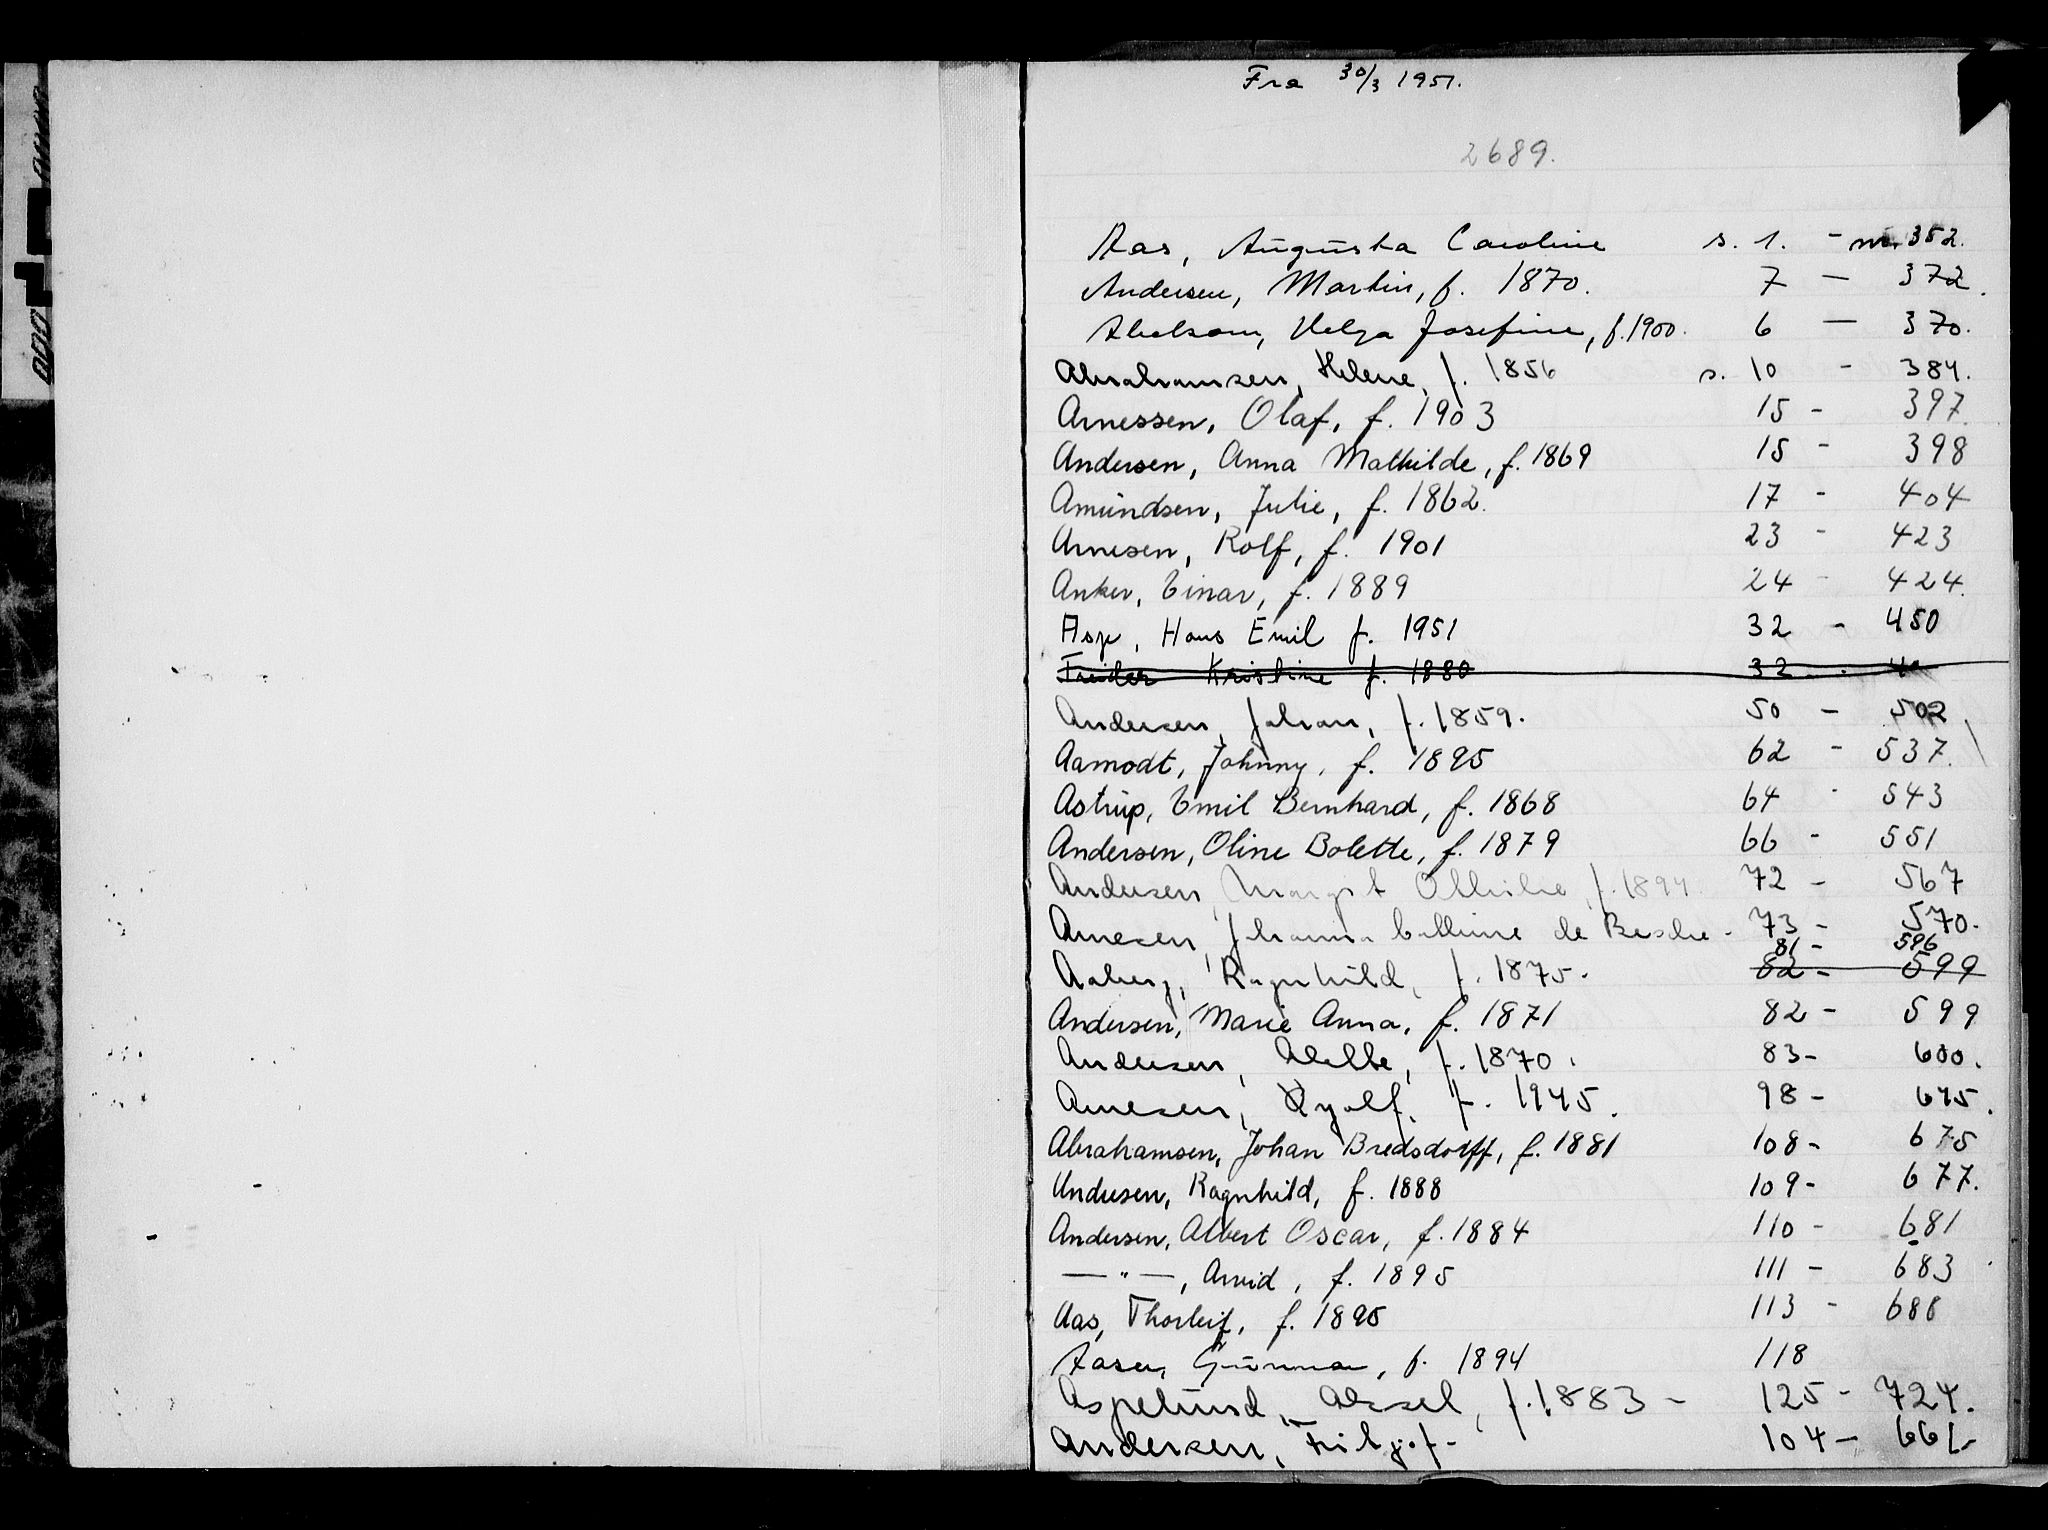 Fra 30/3 1951.
2689.
Aas, Augusta Caroline s. 1. - nr. 352.
Andersen, Martin, f. 1870. 7 — 372.
Abelson, Helga Josefine, f. 1900. 6 — 370.
Abrahamsen, Helene, f. 1856 s. 10 - 384.
Arnessen, Olaf, f. 1903 15 - 397.
Andersen, Anna Mathilde, f. 1869 15 - 398
Amundsen, Julie, f. 1862. 17 - 404
Arnesen, Rolf, f. 1901 23 - 423
Anker, Einar, f. 1889 24 - 424.
Asp, Hans Emil f. 1951 32 - 450
Kristine f. 1880 32 -
Andersen, Johan, f. 1859. 50 - 502
Aamodt, Johnny, f. 1895 62 - 537.
Astrup, Emil Bernhard, f. 1868 64 - 543
Andersen, Oline Bolette, f. 1879 66 - 551
Andersen, Margit Othilie, f. 1894. 72 - 567
Arnesen, Johanna Cathrine de Besche - 73 - 570.
81 - 596
Aaberg, Ragnhild, f. 1875. 82 - 599
Andersen, Marie Anna, f. 1871 82 - 599
Andersen, f. 1870. 83 - 600.
Arnesen, f. 1945. 98 - 645.
Abrahamsen, Johan Bredsdorff, f. 1881 108 - 675
Andersen, Ragnhild, f. 1888 109 - 677.
Andersen, Albert Oscar, f. 1884 110 - 681
— " —, Arvid, f. 1895 111 - 683
Aas, Thorleif, f. 1895 113 - 688
Aasen, Gunnar, f. 1894 118
Aspelund, Aksel, f. 1883 - 125 - 724.
Andersen, Fritjof - 104 - 661.-